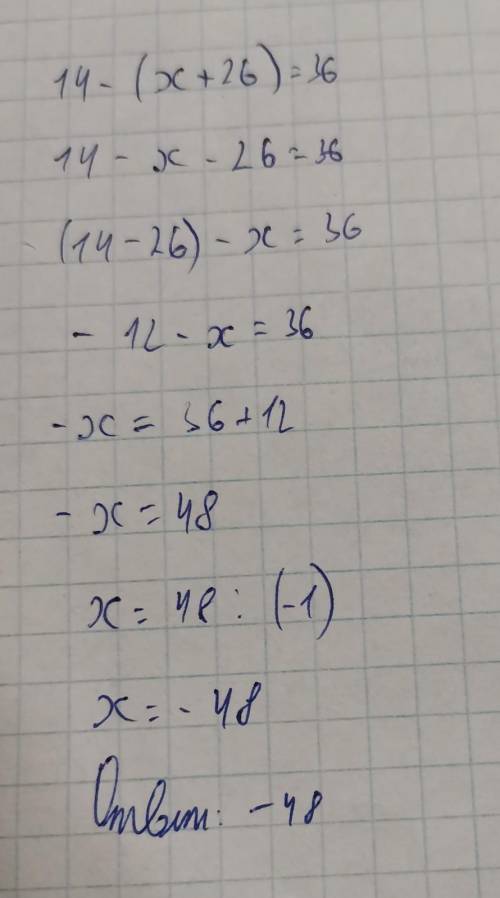 14 - (x + 26) = 36
14 - x - 26 = 36
(14 - 26) - x = 36
- 12 - x = 36
- x = 36 + 12
- x = 48
x = 48 : (-1)
x = - 48
Ответ: - 48